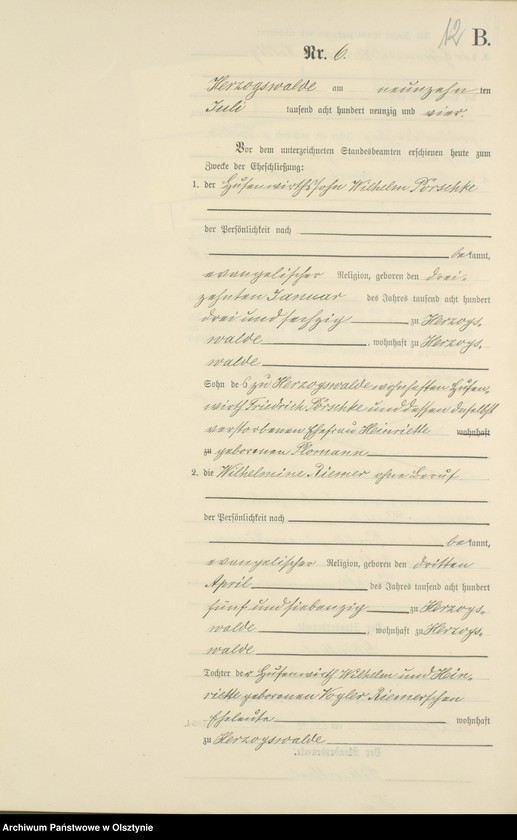 12 B.
Nr. 6.
Herzogswalde am neunzehn ten
Juli tausend acht hundert neunzig und vier.
Vor dem unterzeichneten Standesbeamten erschienen heute zum
Zwecke der Eheschließung:
1. der Hufenwirthssohn Wilhelm Porschke
der Persönlichkeit nach
bekannt,
evangelischer Religion, geboren den drei-
zehnten Januar des Jahres tausend acht hundert
drei und sechzig zu Herzogs-
walde, wohnhaft zu Herzogs-
walde
Sohn des zu Herzogswalde wohnhaften Hufen-
wirth Friedrich Porschke und dessen daselbst
verstorbenen Ehefrau Heinriette wohnhaft
zu geborenen Plomann
2. die Wilhelmine Riemer ohne Beruf
der Persönlichkeit nach
bekannt,
evangelischer Religion, geboren den dritten
April des Jahres tausend acht hundert
fünf und siebenzig zu Herzogs-
walde, wohnhaft zu Herzogs-
walde
Tochter der Hufenwirth Wilhelm und Hein-
riette geborenen Vogler Riemerschen
Eheleute wohnhaft
zu Herzogswalde
Archiwum Państwowe w Olsztynie